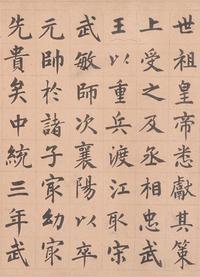 世祖皇帝悉獻其策
上受之及丞相忠武
王以重兵渡江取宋
武敏師次襄陽以卒
元帥於諸子㝡幼㝡
先貴矣中統三年武